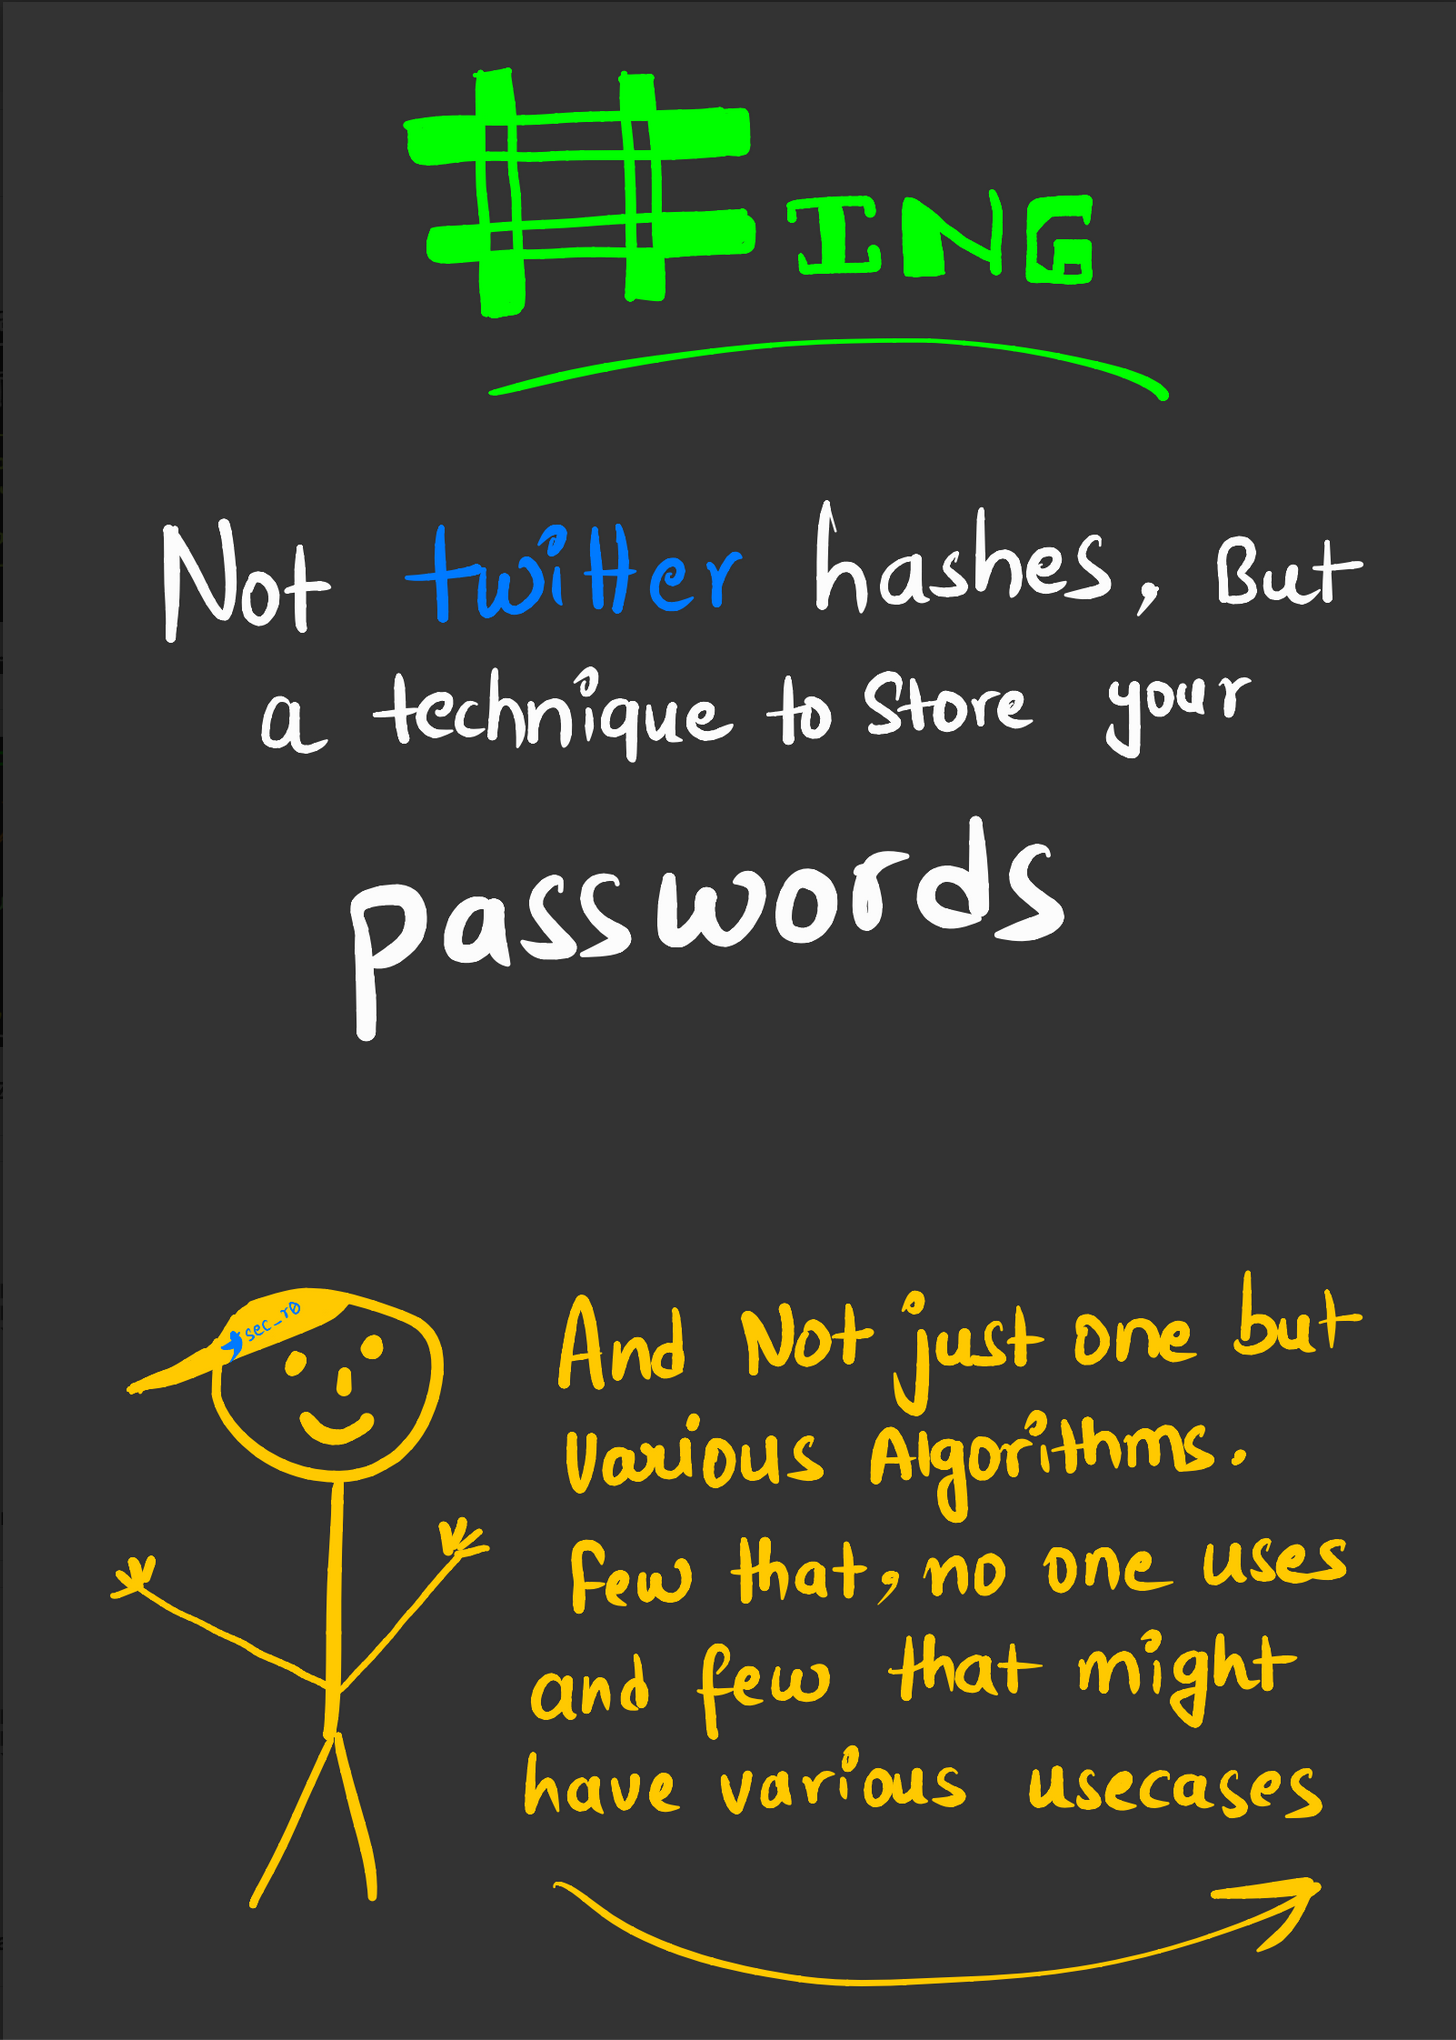 #ING
Not twitter hashes, But
a technique to store your
passwords
sec_r0
And Not just one but
Various Algorithms.
Few that, no one uses
and few that might
have various usecases